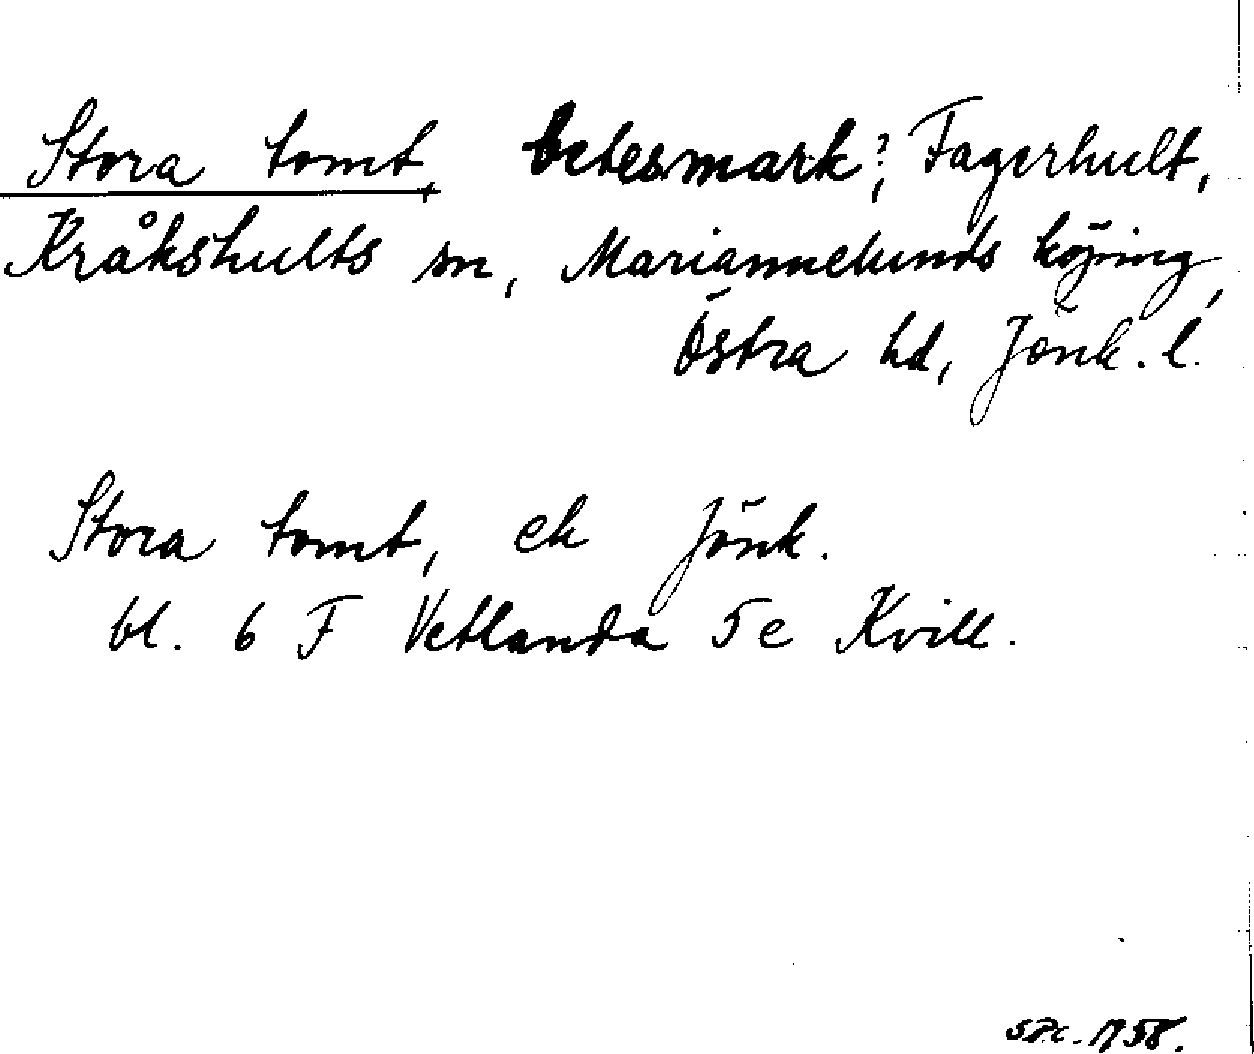 Stora tomt, betesmark?, Fagerhult,
Kråkshults sn, Mariannelunds köping,
Östra hd, Jönk. l.
Stora tomt, ek Jönk.
bl. 6 F Vetlanda 5e Kvill.
1958.